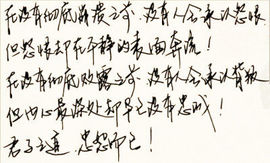 在没有彻底崩溃之前，没有人会承认怨恨
但怨恨却在平静的表面奔流！
在没有彻底败露之前，没有人会承认背叛
但内心最深处却早已没有忠诚！
君子之道，忠恕而已！